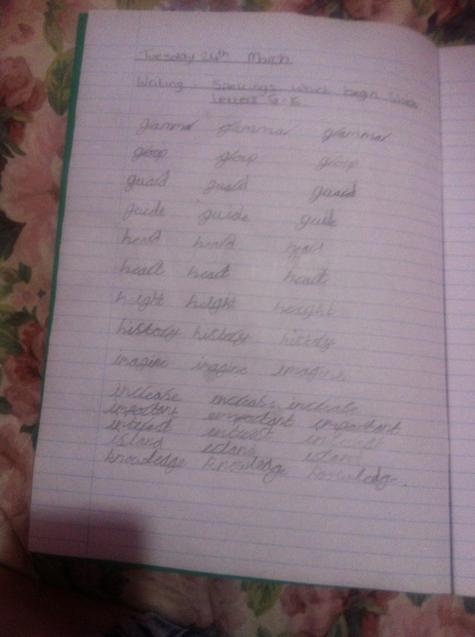 Tuesday 24th March
Writing. Spellings which begin with
letters G-K
grammar grammar grammar
group group group
guard guard guard
guide guide guide
heard heard heard
heart heart heart
height height height
history history history
imagine imagine imagine
increase increase increase
important important important
interest interest interest
island island island
knowledge knowledge knowledge.